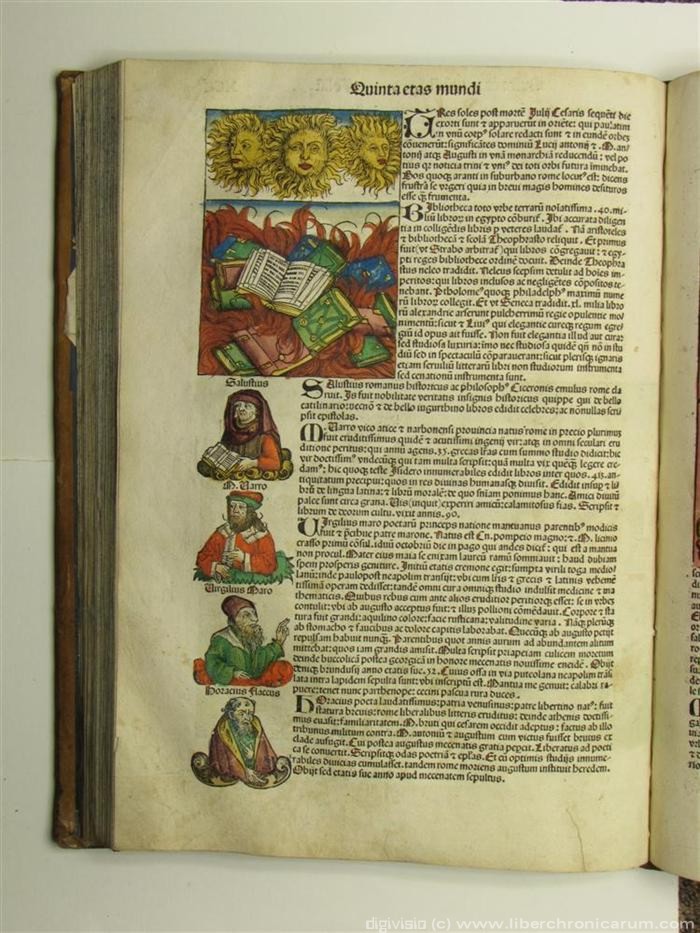 Quinta etas mundi
TRes soles post mortẽ Julij Cesaris sequẽti die
exorti sunt ⁊ apparuerũt in oriẽte: qui paulatim
in vnũ corpꝰ solare redacti sunt ⁊ in eundẽ orbẽ
cõuenerũt: significãtes dominiũ Lucij antonij ⁊ M. an⸗
tonij atqꝫ Augusti in vnã monarchiã reducendũ: vel po
tius qꝛ noticia trini ⁊ vniꝰ dei toti orbi futura iminebat.
Bos quoqꝫ aranti in suburbano rome locutꝰ est: dicens
frustra se vrgeri quia in breui magis homines defuturos
esse ꝗ̃ frumenta.
BJbliotheca toto vrbe terrarũ nolatissima .40. mi⸗
liũ libroꝝ in egypto cõburit̃. Jbi accurata diligen
tia in colligẽdis libris p veteres laudat̃. Nã aristoteles
⁊ bibliothecã ⁊ scolã Theophrasto reliquit. Et primus
fuit (vt Strabo arbitrat̃) qui libros cõgregauit: ⁊ egy⸗
pti reges bibliothece ordinẽ docuit. Deinde Theophra
stus neleo tradidit. Neleus scepsim detulit ad hoies im
peritos: qui libros inclusos ac negligẽtes cõpositos te⸗
nebant. Ptholomeꝰ quoqꝫ philadelphꝰ maximũ nume
rũ libroꝝ collegit. Et vt Seneca tradidit .xl. milia libro
rũ alexandrie arserunt pulcherrimũ regie opulentie mo
nimentũ: sicut ⁊ Liuiꝰ qui elegantie cureqꝫ regum egre⸗
giũ id opus ait fuisse. Non fuit elegantia illud aut cura:
sed studiosa luxuria: imo nec studiosa quidẽ qm̃ nõ in stu
diũ sed in spectaculũ cõparauerant: sicut plerisqꝫ ignaris
etiam seruiliũ litterarũ libri non studiorum instrumenta
sed cenationũ instrumenta sunt.
Salustius
SAlustius romanus historicus ac philosophꝰ Ciceronis emulus rome cla
ruit. Js fuit nobilitate veritatis insignis historicus quippe qui de bello
catilinario: necnõ ⁊ de bello iugurthino libros edidit celebres: ac nõnullas scri
psit epistolas.
M. Varro
MVarro vico atice ⁊ narbonensi prouincia natus rome in precio plurimũ
fuit eruditissimus quidẽ ⁊ acutissimi ingenij vir: atqꝫ in omni seculari eru
ditione peritus: qui annũ agens .35. grecas lr̃as cum summo studio didicit: hic
vir doctissimꝰ vndecũqꝫ qui tam multa scripsit: quã multa vix quẽqꝫ legere cre⸗
damꝰ: hic quoqꝫ teste Jsidero innumerabiles edidit libros inter quos .413. an⸗
tiquitatum precipui: quos in res diuinas humanasqꝫ diuisit. Edidit insup ⁊ li⸗
brũ de lingua latina: ⁊ librũ moralẽ: de quo sniam ponimus hanc. Amici diuitũ
palee sunt circa grana. Vis (inquit) experiri amicũ: calamitosus fias. Scripsit ⁊
librum de deorum cultu. vixit annis .90.
Virgilius Maro
VJrgilius maro poetarũ princeps natione mantuanus parentibꝰ modicis
fuit ⁊ p̃cibue patre marone. Natus est Cn. pompeio magno: ⁊ M. licinio
crasso primũ cõsul. iduũ octobriũ die in pago qui andes dicit̃: qui est a mantua
non procul. Mater eius maia se enixam laureũ ramũ somniauit: haud dubiam
spem prosperis geniture. Jnitiũ etatis cremone egit: sumpta virili toga mediol⸗
lanũ: inde paulopost neapolim transijt: vbi cum lr̃is ⁊ grecis ⁊ latinis vehemẽ
tissimã operam dedisset: tandẽ omni cura omniqꝫ studio indulsit medicine ⁊ ma
thematicis. Quibus rebus cum ante alios eruditior peritiorqꝫ esset: se in vrbẽ
contulit: vbi ab augusto acceptus fuit: ⁊ illus pollioni cõmẽdauit. Corpore ⁊ sta
tura fuit grandi: aquilino colore: facie rusticana: valitudine varia. Nãqꝫ plerũqꝫ
ab stomacho ⁊ faucibus ac dolore capitis laborabat. Quecũqꝫ ab augusto petijt
repulsam habuit nunꝗ̃. Parentibus quot annis aurum ad abundantem alitum
mittebat: quos iam grandis amisit. Multa scripsit priapeiam culicem moretum
deinde buccolicã postea georgicã in honorẽ mecenatis nouissime eneidẽ. Obijt
deniqꝫ brundusij anno etatis sue .52. Cuius ossa in via puteolana neapolim trãs
lata intra lapidem sepulta sunt: vbi inscriptũ est. Mantua me genuit: calabri ra⸗
puere: tenet nunc parthenope: cecini pascua rura duces.
Horacius flaccus
HOracius poeta laudatissimus: patria venusinus: patre libertino natꝰ: fuit
statura breuis: rome liberalibus litteris eruditus: deinde athenis doctissi⸗
mus euasit: familiaritatem. M. bruti qui cesarem occidit adeptus: factus ab illo
tribunus militum contra. M. antoniũ ⁊ augustum cum victus fuisset brutus ex
clade aufugit. Cui postea augustus mecenatis gratia pepcit. Liberatus ad poeti
ca se conuertit. Scripsitqꝫ odas poetriã ⁊ epl̃as. Et cũ optimis studijs innume⸗
rabiles diuicias cumulasset. tandem rome moriens augustum instituit heredem.
Obijt sed etatis sue anno apud mecenatem sepultus.
digivisio (c) www.liberchronicarum.com